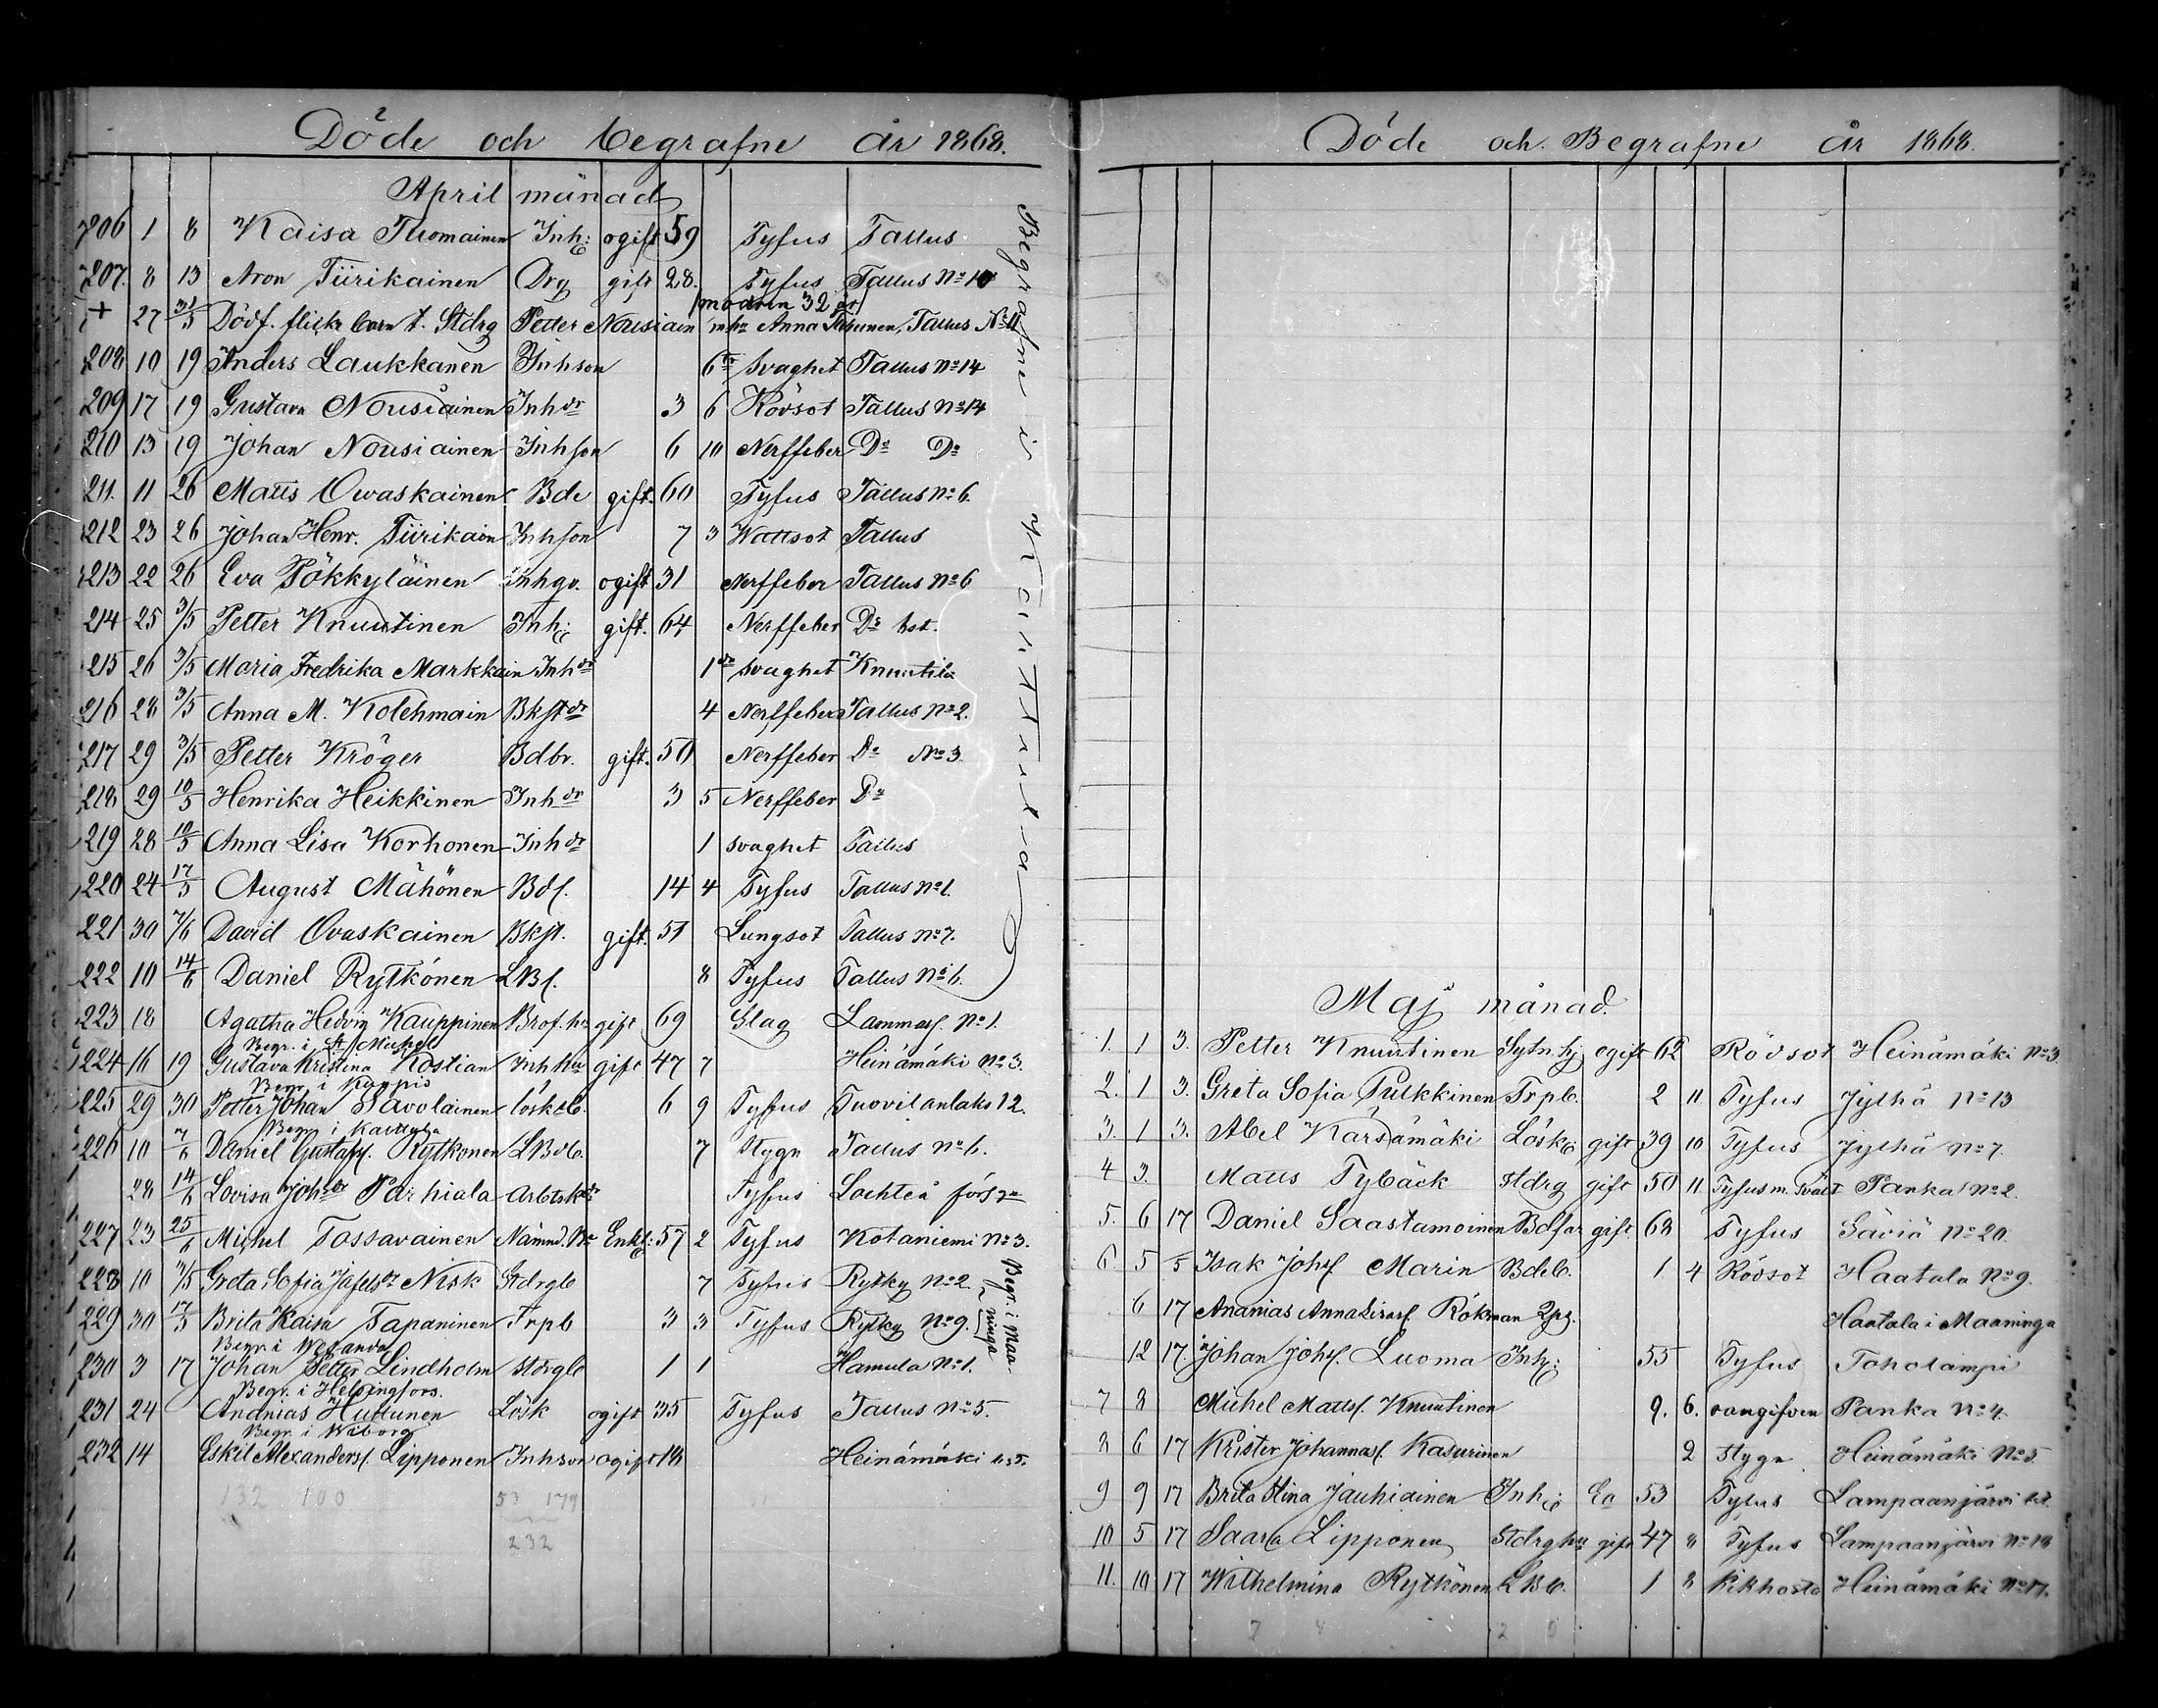 Döde och begrafne år 1868.
April månad
206 1 8 Kaisa Thomainen Inh: ogift 59 Tyfus Tallus
207. 8 13 Aron Tiirikainen Drg gift 28. Tyfus Tallus No 10
modren 32 år
+ 27 31/5 Dödf. flickebarn t. Stdrg Petter Nousiain m hu Anna Tahunen, Tallus No 11
208 10 19 Anders Laukkanen Inhson 6 dr svaghet Tallus No 14
209 17 19 Gustava Nousiainen Inhdr 3 6 Rödsot Tallus No 14
210 13 19 Johan Nousiainen Inhson 6 10 Nerffeber Do Do
211. 11 26 Matts Ovaskainen Bde gift. 60 Tyfus Tallus No 6.
212 23 26 Johan Henr. Tiirikain Inhson 7 3 Wattsot Tallus
213 22 26 Eva Pökkyläinen Inhqv. ogift 31 Nerffeber Tallus No 6
214 25 3/5 Petter Knuutinen Inh: gift. 64 Nerffeber Do bst.
215 26 3/5 Maria Fredrika Markkain Inhdr 1 dr svaghet Knuutila
216 28 3/5 Anna M. Kolehmain Bkstdr 4 Nerffeber Tallus No 2.
217 29 3/5 Petter Kröger Bdbr. gift. 50 Nerffeber Do No 3
218 29 10/5 Henrika Heikkinen Inhdr 3 5 Nerffeber Do
219 28 10/5 Anna Lisa Korhonen Inhdr 1 svaghet Tallus
220 24 17/5 August Mähönen Bds. 14 4 Tyfus Tallus No 1.
221 30 7/6 David Ovaskainen Bkst. gift. 51 Lungsot Tallus No 7.
222 10 14/6 Daniel Rytkönen LBs. 8 Tyfus Tallus No 6.
Begrafne i Karttula
223 18 Agatha Hedvig Kauppinen Prof. hu gift 69 Slag Lammas. No 1.
Begr. i St Michel
224 16 19 Gustava Kristina Kostian Inh hu gift 47 7 Heinämäki No 3.
Begr. i Kuopio
225 29 30 Petter Johan Savolainen löskeb. 6 9 Tyfus Tuovilanlaks 12.
Begr. i Karttula
226 10 7/6 Daniel Gustafs. Rytkonen LBdb. 7 Stygn Tallus No 6.
28 14/6 Lovisa Johsdr Parhiala Arbtskdr Tyfus Lochteå förs
227 23 25/6 Michel Tossavainen Nämnd. Enkl: 57 2 Tyfus Kotaniemi No 3.
228 10 3/5 Greta Sofia Jafetsdr Nisk Stdrgb 7 Tyfus Rytky No 2
229 30 17/5 Brita Kaisa Tapaninen Trpb 3 3 Tyfus Rytky No 9.
Begr. i Maaninga
Begr. i Wesanda
230 3 17 Johan Petter Lindholm Stdrgb 1 1 Hamula No 1.
Begr. i Helsingfors.
231 24 Ananias Huttunen Lösk ogift 35 Tyfus Tallus No 5.
Begr. i Wiborg
232 14 Eskil Alexanders. Lipponen Inhson ogift 18 Heinämäki
132 100 53 179
232
Döde och Begrafne år 1868.
Maj månad.
1. 1 3. Petter Knuutinen Sytn.hj ogift 62 Rödsot Heinämäki No 3
2. 1 3. Greta Sofia Pulkkinen Trpb. 2 11 Tyfus Jylhä No 13
3. 1 3. Abel Kärsämäki Lösk: gift 39 10 Tyfus Jylhä No 7.
4 3. Matts Tybäck Stdrg gift 50 11 Tyfus m. Svält Panka No 2.
5. 6 17 Daniel Saastamoinen Bdfar gift. 68 Tyfus Säviä No 20.
6 5 5 Isak Johs. Marin Bdeb. 1 4 Rödsot Haatala No 9.
6 17 Ananias Annalisas. Rökman Haatala i Maaninga
12 17. Johan Johs. Luoma Inh: 55 Tyfus Toholampi
7 8 Michel Matts. Knuutinen 9. 6. oangifven Panka No 4.
8 6 17 Krister Johannas. Kasurinen 2 Stygn Heinämäki No 5.
9 9 17 Brita Stina Jauhiainen Inh: Ea 53 Tyfus Lampaanjärvi bst.
10 5 17 Saara Lipponen Stdrghu gift 47 8 Tyfus Lampaanjärvi No 18
11. 10 17 Wilhelmina Rytkönen LBb. 1 8 Kikhosta Heinämäki No 17.